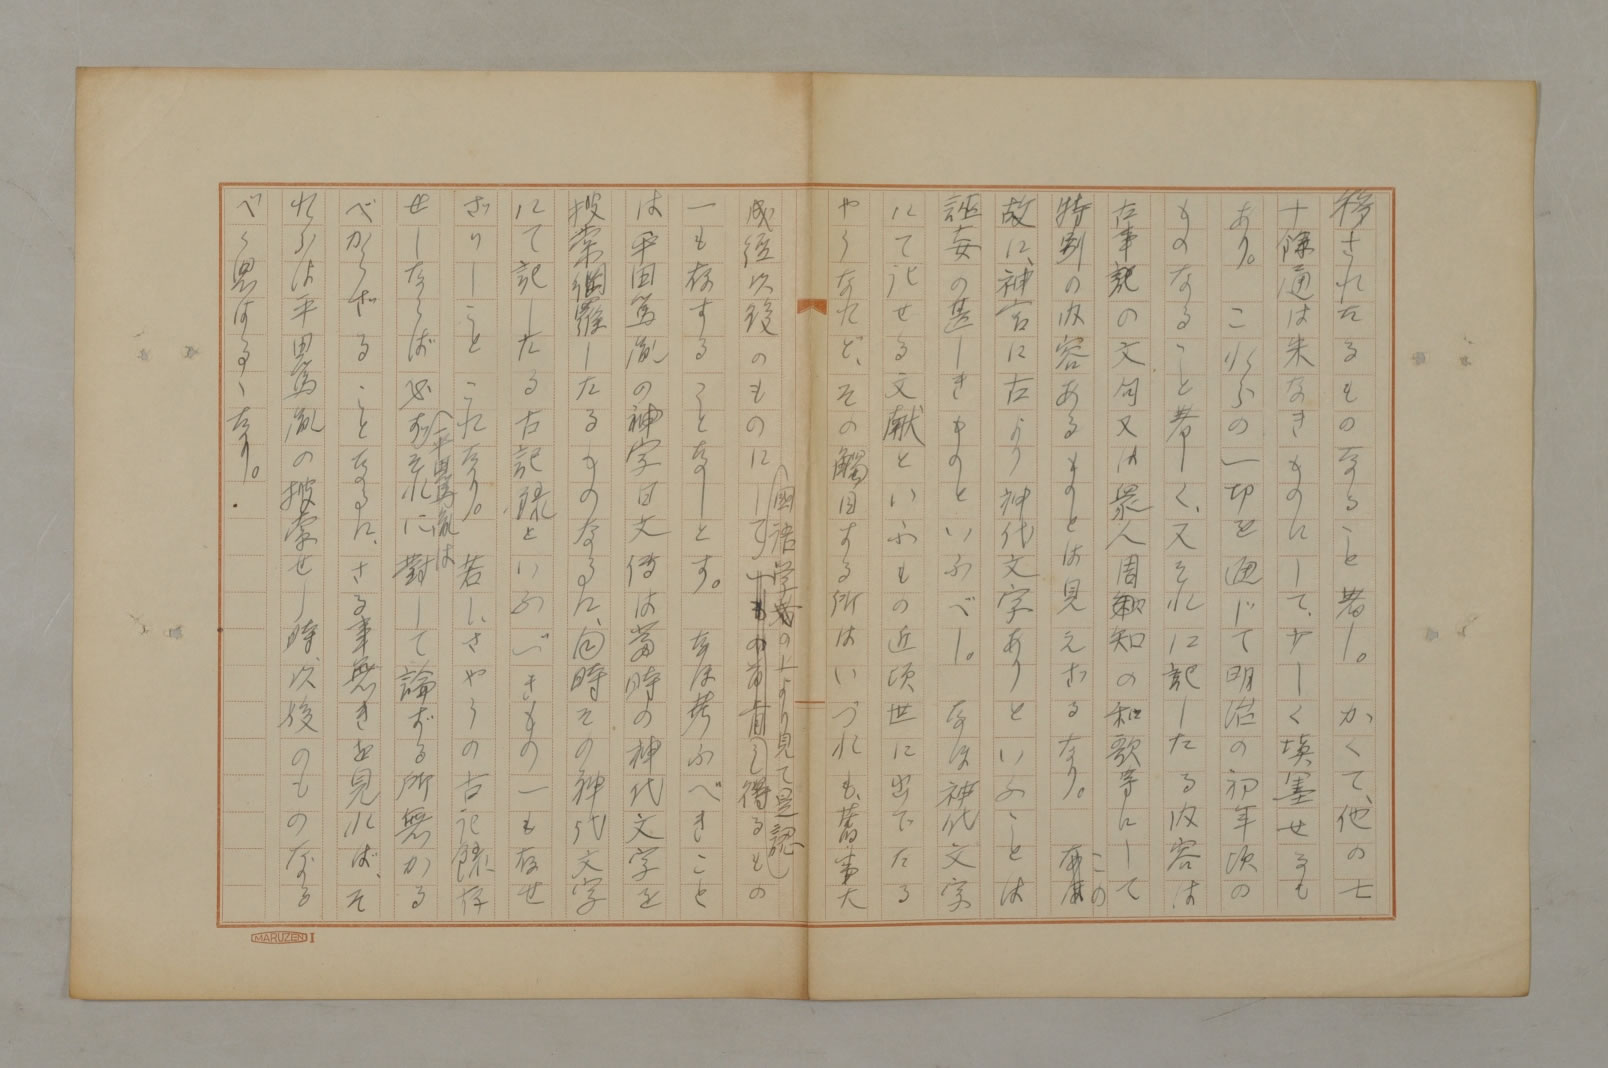 移されたるものなること著し。かくて、他の七
十餘通は朱なきものにして、少しく填墨せるも
あり。これらの一切を通じて明治の初年頃の
ものなること著しく、又それに記したる内容は
古事記の文句又は衆人周知の和歌等にして
特別の内容あるものとは見えざるなり。この
故に、神宮に古より神代文字ありといふことは
誣妄の甚しきものといふべし。なほ神代文字
にて記せる文献といふもの近頃世に出でたる
やうなれど、その觸目する所はいづれも、舊事大
成經以後のものにして
国語学の上より見て是認し
得るもの
一も存することなしとす。なほ考ふべきこと
は平田篤胤の神字日文傳は當時の神代文字を
捜索網羅したるものなるに、同時その神代文字
にて記したる古記録といふべきもの一も存せ
ざりしことこれなり。若しさやうの古記録存
せしならば必ずそれに對して論ずる所無かる
平田篤胤は
べからざることなるに、さる事無きを見れば、そ
れらは平田篤胤の捜索せし時以後のものなる
べく思はるゝなり。
MARUZEN I